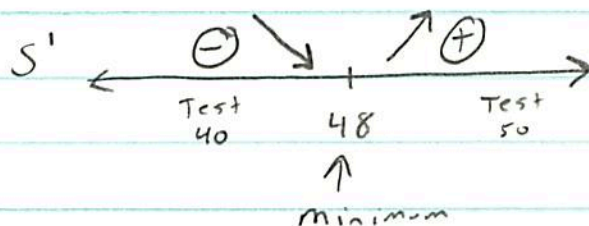 S' ⊖ ⊕
Test 40 48 Test 50
minimum